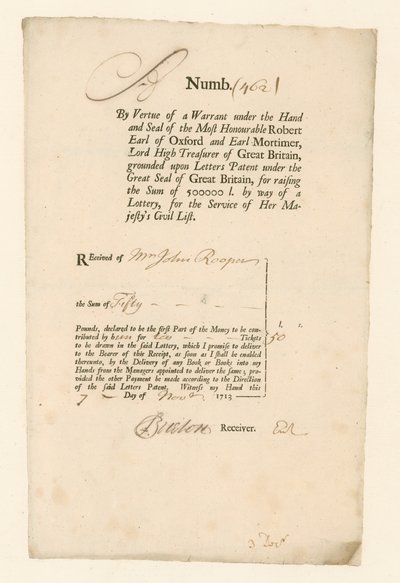 Numb. (462)
By Vertue of a Warrant under the Hand
and Seal of the Most Honourable Robert
Earl of Oxford and Earl Mortimer,
Lord High Treasurer of Great Britain,
grounded upon Letters Patent under the
Great Seal of Great Britain, for raising
the Sum of 500000 l. by way of a
Lottery, for the Service of Her Ma-
jesty's Civil List.
REceived of Mr John Rooper
the Sum of Fifty
Pounds, declared to be the first Part of the Money to be con-
tributed by him for ten Tickets
to be drawn in the said Lottery, which I promise to deliver
to the Bearer of this Receipt, as soon as I shall be enabled
thereunto, by the Delivery of any Book or Books into my
Hands from the Managers appointed to deliver the same; pro-
vided the other Payment be made according to the Direction
of the said Letters Patent, Witness my Hand this
7 Day of Novr 1713
l. s.
50
Receiver.